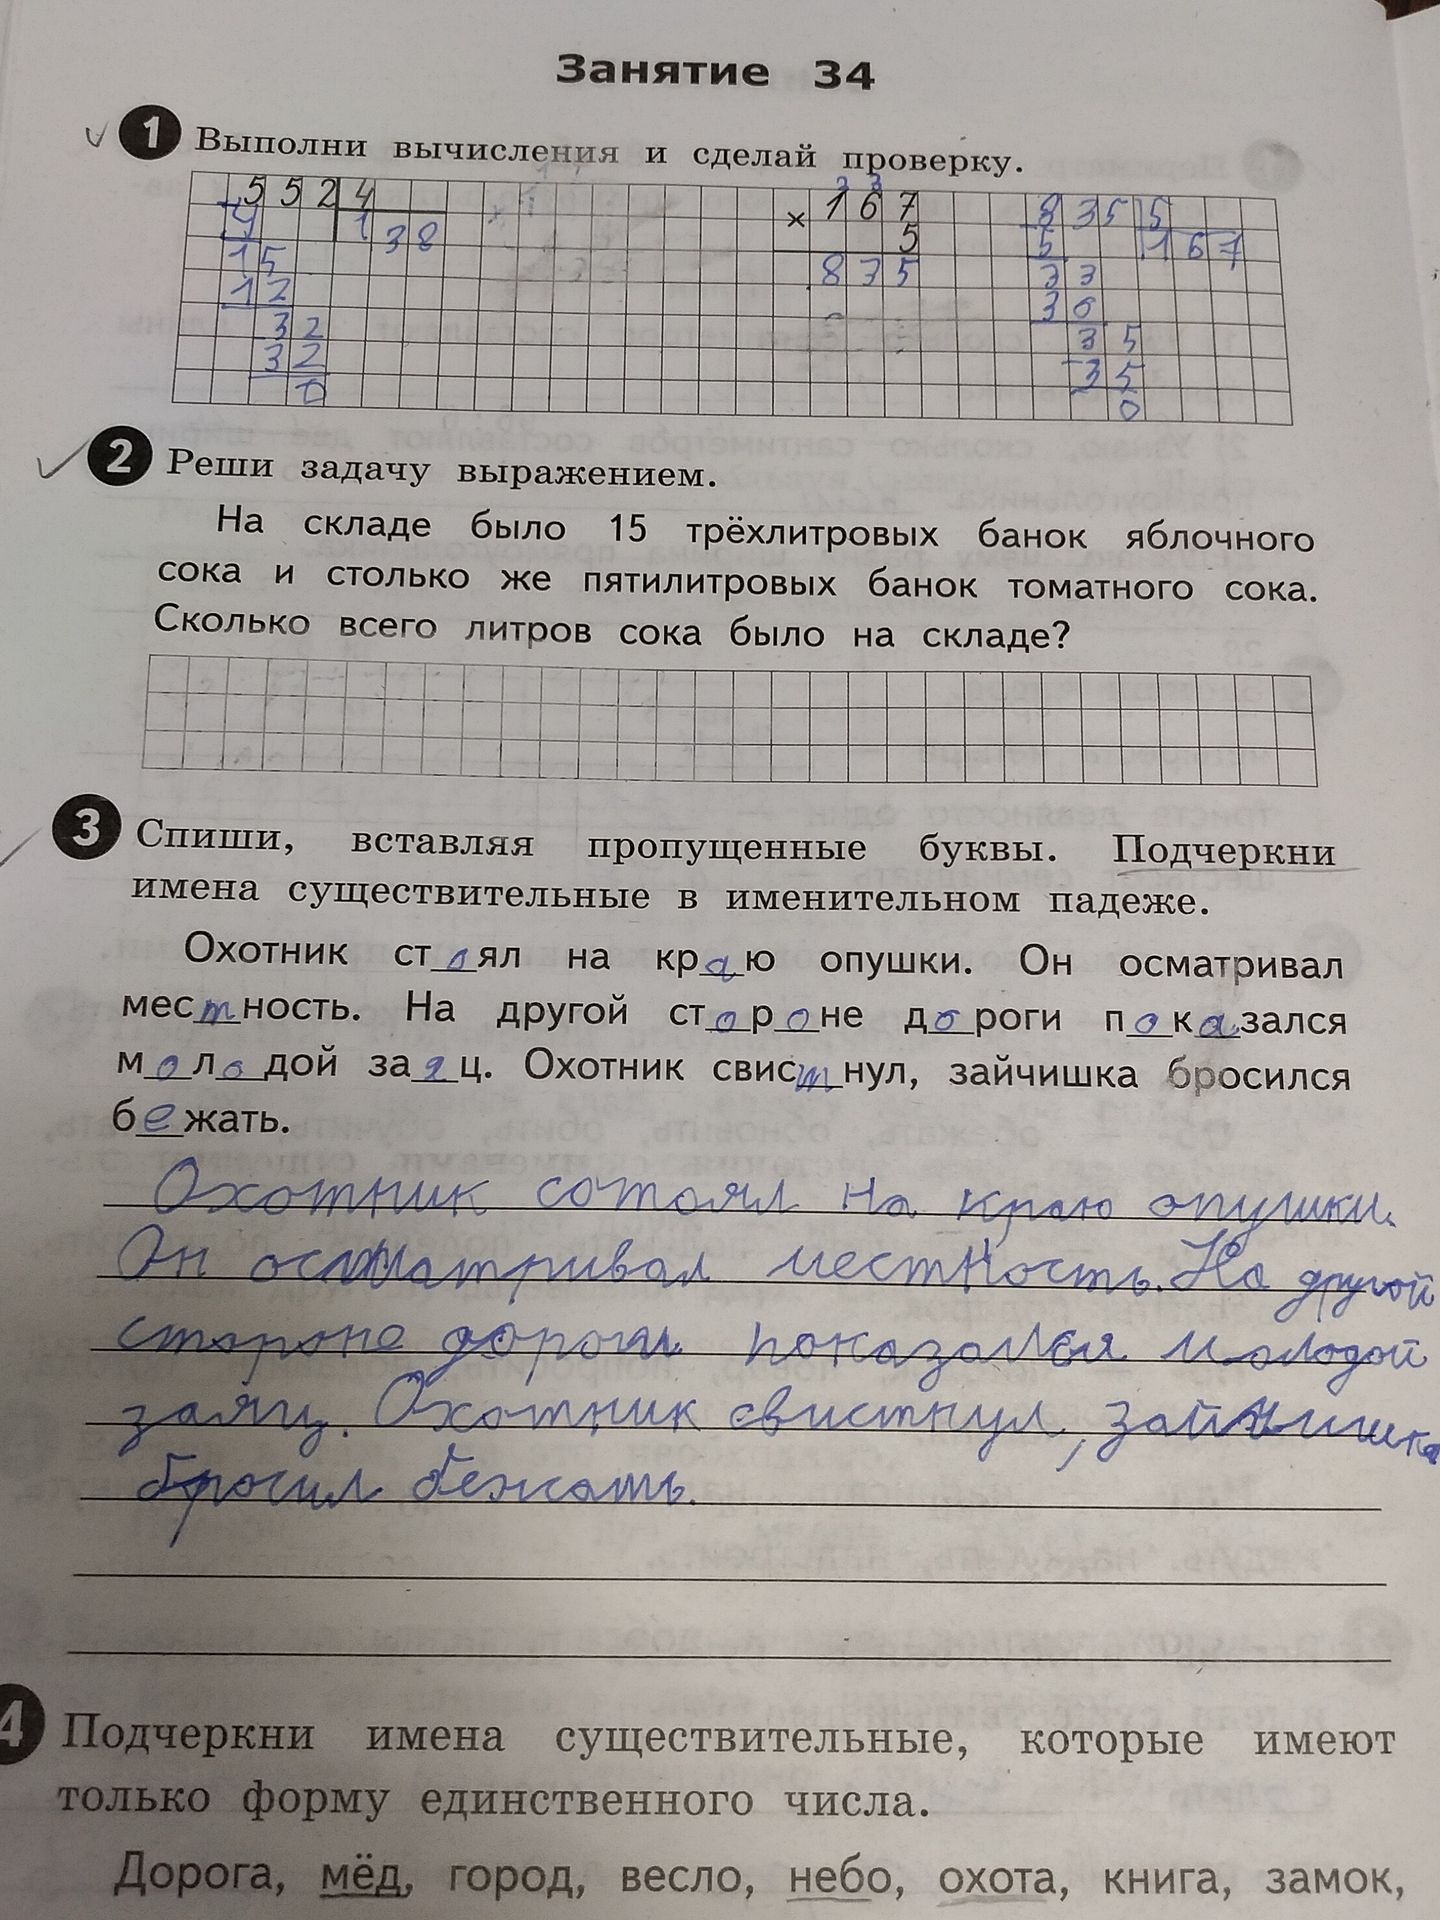 Занятие 34
1 Выполни вычисления и сделай проверку.
552 4
4 138
15
12
32
32
0
3 3
× 167
5
835
835 5
5 167
33
30
35
35
0
2 Реши задачу выражением.
На складе было 15 трёхлитровых банок яблочного
сока и столько же пятилитровых банок томатного сока.
Сколько всего литров сока было на складе?
3 Спиши, вставляя пропущенные буквы. Подчеркни
имена существительные в именительном падеже.
Охотник стоял на краю опушки. Он осматривал
местность. На другой стороне дороги показался
молодой заяц. Охотник свистнул, зайчишка бросился
бежать.
Охотник сотоял на краю опушки.
Он осматривал местность. На другой
стороне дороги показался молодой
заяц. Охотник свистнул, зайчишка
бросил бежать.
4 Подчеркни имена существительные, которые имеют
только форму единственного числа.
Дорога, мёд, город, весло, небо, охота, книга, замок,